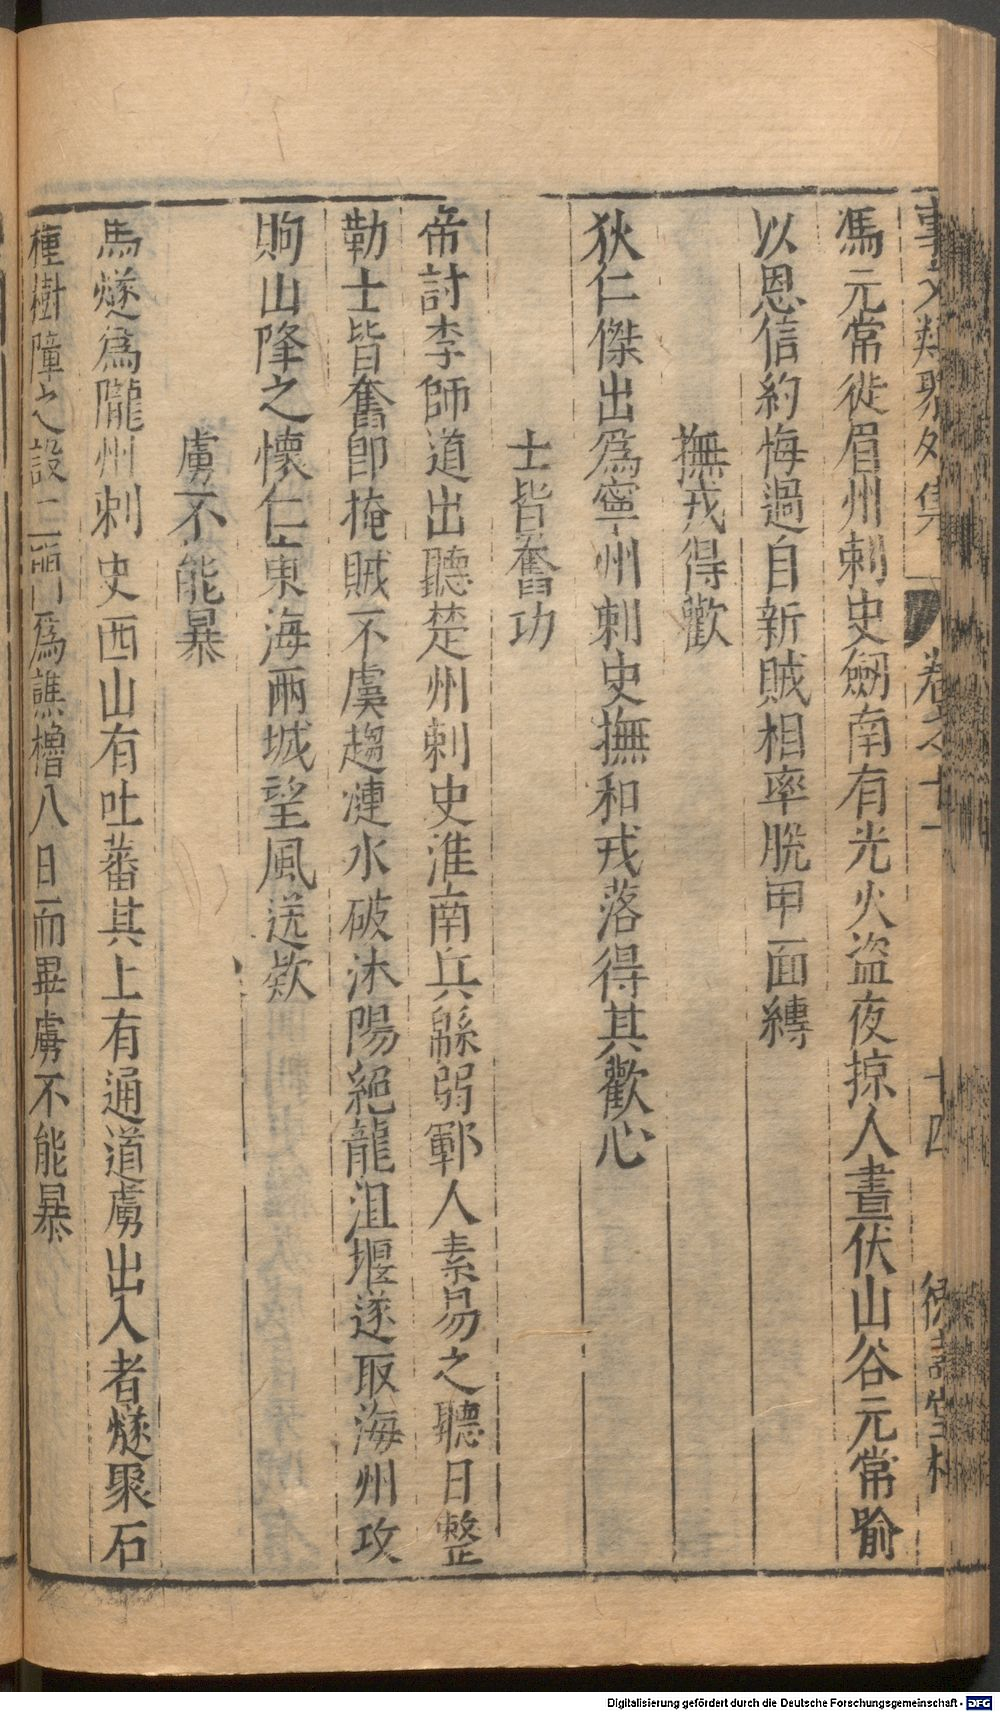 事文類聚外集 卷之十一 十四 德壽堂梓
馮元常徙眉州刺史劒南有光火盜夜掠人晝伏山谷元常喻
以恩信約悔過自新賊相率脫甲面縛
撫戎得歡
狄仁傑出爲寧州刺史撫和戎落得其歡心
士皆奮功
帝討李師道出聽楚州刺史淮南兵緜弱鄆人素易之聽日整
勒士皆奮卽掩賊不虞趨漣水破沭陽絕龍沮堰遂取海州攻
朐山降之懷仁東海兩城望風送欵
虜不能暴
馬燧爲隴州刺史西山有吐蕃其上有通道虜出入者燧聚石
種樹障之設二門爲譙櫓八日而畢虜不能暴
Digitalisierung gefördert durch die Deutsche Forschungsgemeinschaft - DFG